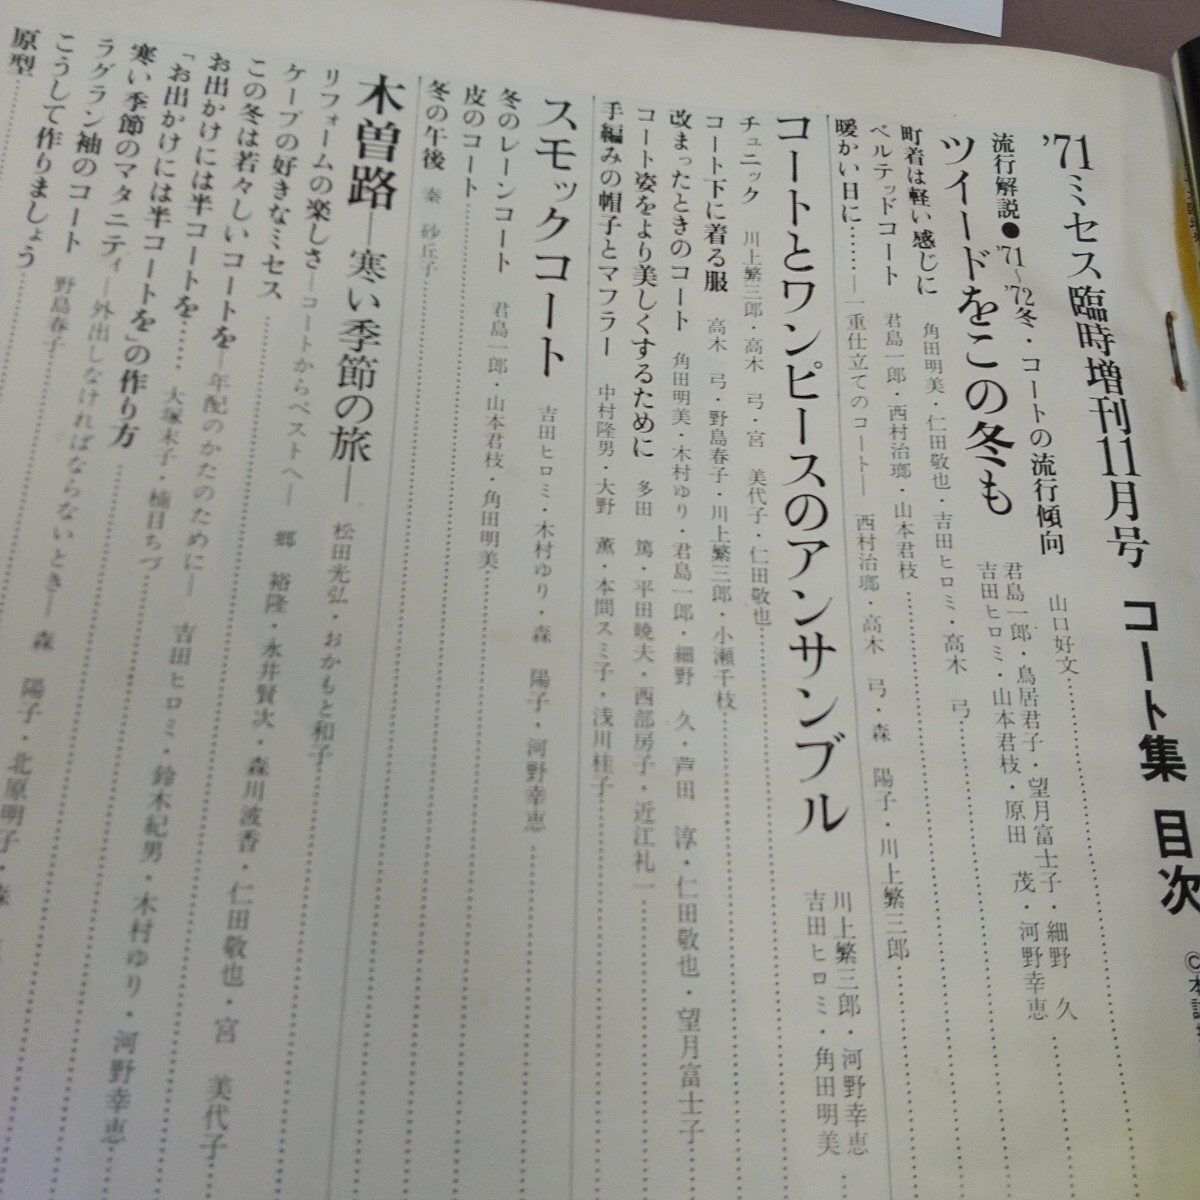 '71ミセス臨時増刊11月号 コート集 目次
流行解説●'71〜'72冬・コートの流行傾向 山口好文
ツイードをこの冬も 君島一郎・鳥居君子・望月富士子・細野 久
吉田ヒロミ・山本君枝・原田 茂・河野幸恵
町着は軽い感じに 角田明美・仁田敬也・吉田ヒロミ・高木 弓
ベルテッドコート 君島一郎・西村治瑯・山本君枝
暖かい日に……―一重仕立てのコート― 西村治瑯・高木 弓・森 陽子・川上繁三郎
コートとワンピースのアンサンブル 川上繁三郎・河野幸恵
吉田ヒロミ・角田明美
チュニック 川上繁三郎・高木 弓・宮 美代子・仁田敬也
コート下に着る服 高木 弓・野島春子・川上繁三郎・小瀬千枝
改まったときのコート 角田明美・木村ゆり・君島一郎・細野 久・芦田 淳・仁田敬也・望月富士子
コート姿をより美しくするために 多田 篤・平田暁夫・西部房子・近江礼一
手編みの帽子とマフラー 中村隆男・大野 薫・本間スミ子・浅川桂子
スモックコート 吉田ヒロミ・木村ゆり・森 陽子・河野幸恵
冬のレーンコート 君島一郎・山本君枝・角田明美
皮のコート
冬の午後 秦 砂丘子
木曽路―寒い季節の旅― 松田光弘・おかもと和子
リフォームの楽しさ―コートからベストへ― 郷 裕隆・永井賢次・森川波香・仁田敬也・宮 美代子
ケープの好きなミセス
この冬は若々しいコートを―年配のかたのために― 吉田ヒロミ・鈴木紀男・木村ゆり・河野幸恵
お出かけには半コートを…… 大塚末子・楠目ちづ
「お出かけには半コートを」の作り方
寒い季節のマタニティ―外出しなければならないとき― 森 陽子・北原明子・森
ラグラン袖のコート 野島春子
こうして作りましょう
原型